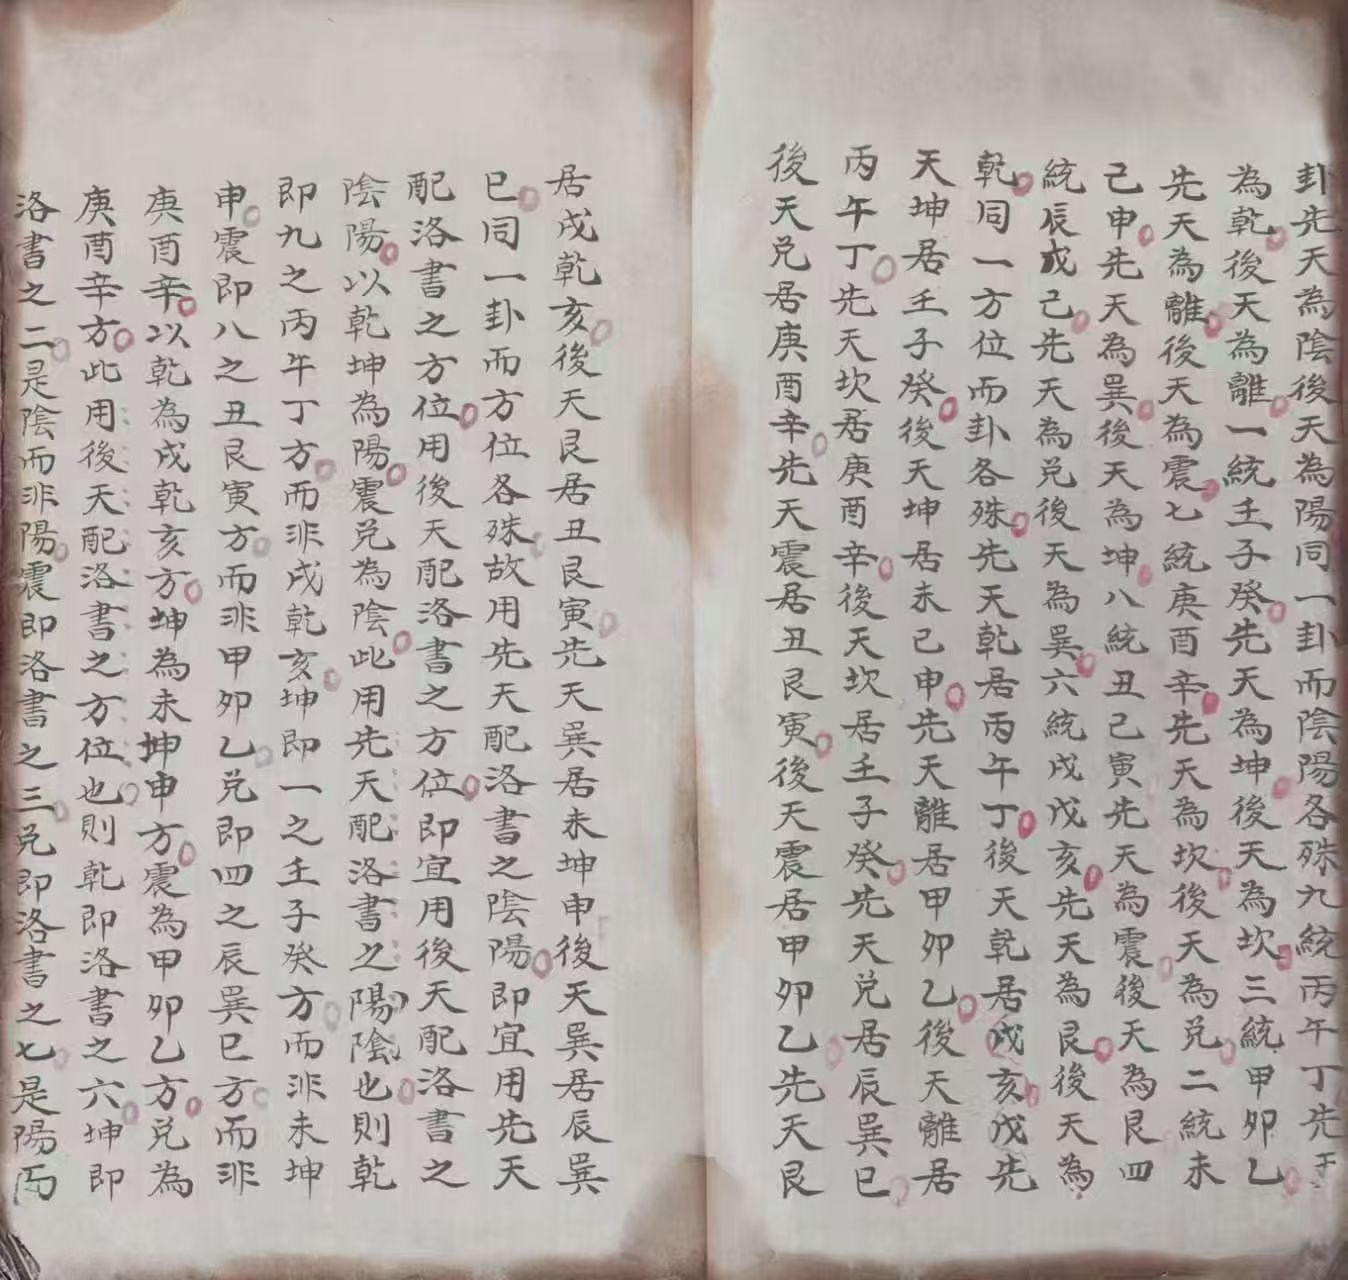 卦先天為陰後天為陽同一卦而陰陽各殊九統丙午丁先
為乾後天為離一統壬子癸先天為坤後天為坎三統甲卯乙
先天為離後天為震七統庚酉辛先天為坎後天為兑二統未
己申先天為巽後天為坤八統丑己寅先天為震後天為艮四
統辰戍己先天為兑後天為巽六統戍戊亥先天為艮後天為
乾同一方位而卦各殊先天乾居丙午丁後天乾居戍亥戊先
天坤居壬子癸後天坤居未己申先天離居甲卯乙後天離居
丙午丁先天坎居庚酉辛後天坎居壬子癸先天兑居辰巽巳
後天兑居庚酉辛先天震居丑艮寅後天震居甲卯乙先天艮
居戍乾亥後天艮居丑艮寅先天巽居未坤申後天巽居辰巽
巳同一卦而方位各殊故用先天配洛書之陰陽即宜用先天
配洛書之方位用後天配洛書之方位即宜用後天配洛書之
陰陽以乾坤為陽震兑為陰此用先天配洛書之陽陰也則乾
即九之丙午丁方而非戍乾亥坤即一之壬子癸方而非未坤
申震即八之丑艮寅方而非甲卯乙兑即四之辰巽巳方而非
庚酉辛以乾為戍乾亥方坤為未坤申方震為甲卯乙方兑為
庚酉辛方此用後天配洛書之方位也則乾即洛書之六坤即
洛書之二是陰而非陽震即洛書之三兑即洛書之七是陽而